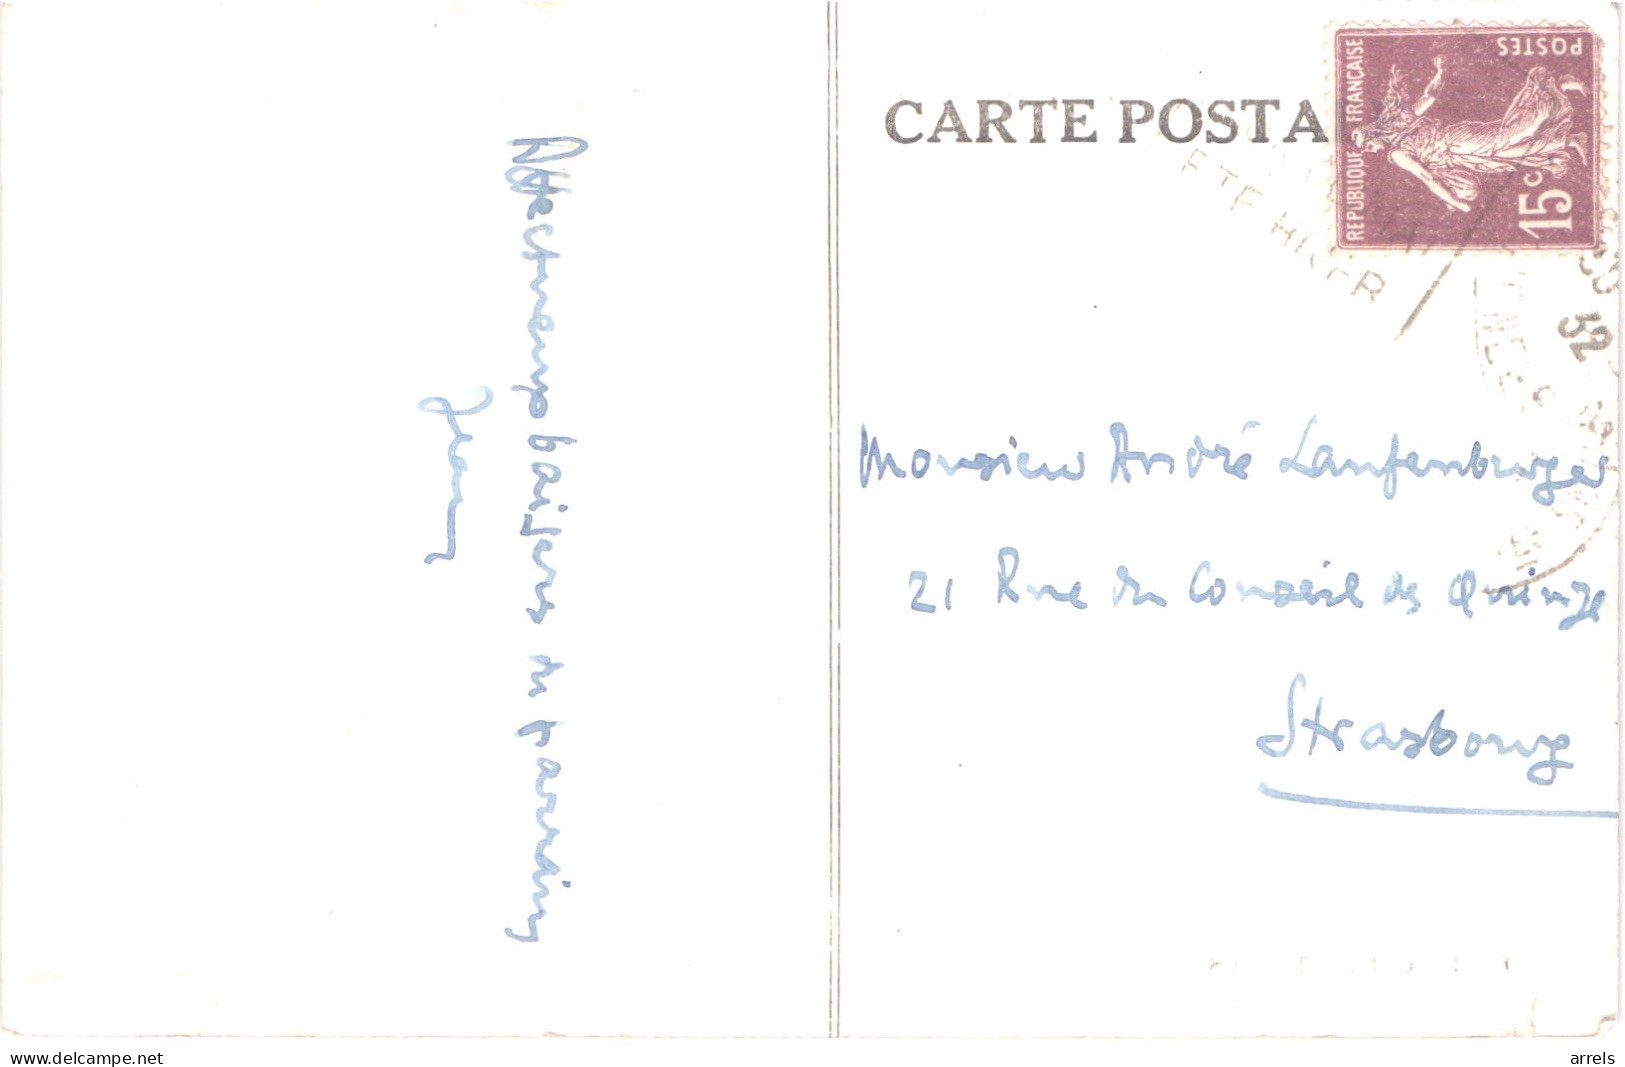 CARTE POSTA
REPUBLIQUE FRANÇAISE
POSTES
15c
ETE HIVER
32
Affectueux baisers du parrain
Jean
Monsieur André Laufenburger
21 Rue du Conseil des Quinze
Strasbourg
www.delcampe.net
arrels